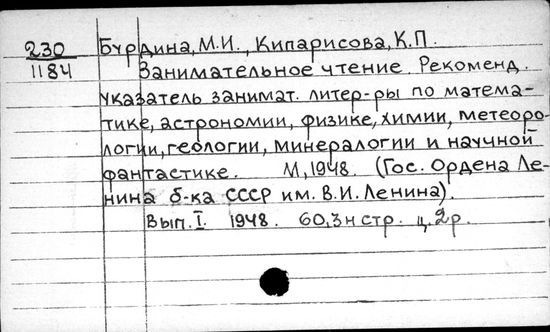 230 Бурдина, М.И., Кипарисова, К.П.
1184 Занимательное чтение. Рекоменд.
указатель занимат. литер-ры по матема-
тике, астрономии, физике, химии, метеоро-
логии, геологии, минералогии и научной
фантастике. М, 1948. (Гос. Ордена Ле-
нина б-ка СССР им. В.И. Ленина).
Вып. I 1948. 60, 3н стр. ц. 2р.